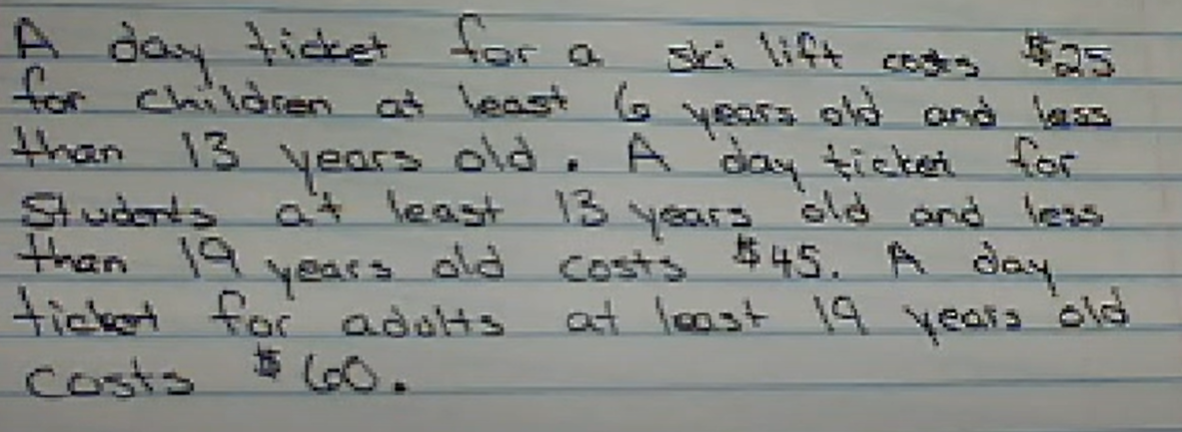 A day ticket for a ski lift costs $25
for children at least 6 years old and less
than 13 years old. A day ticket for
Students at least 13 years old and less
than 19 years old costs $45. A day
ticket for adults at least 19 years old
costs $60.